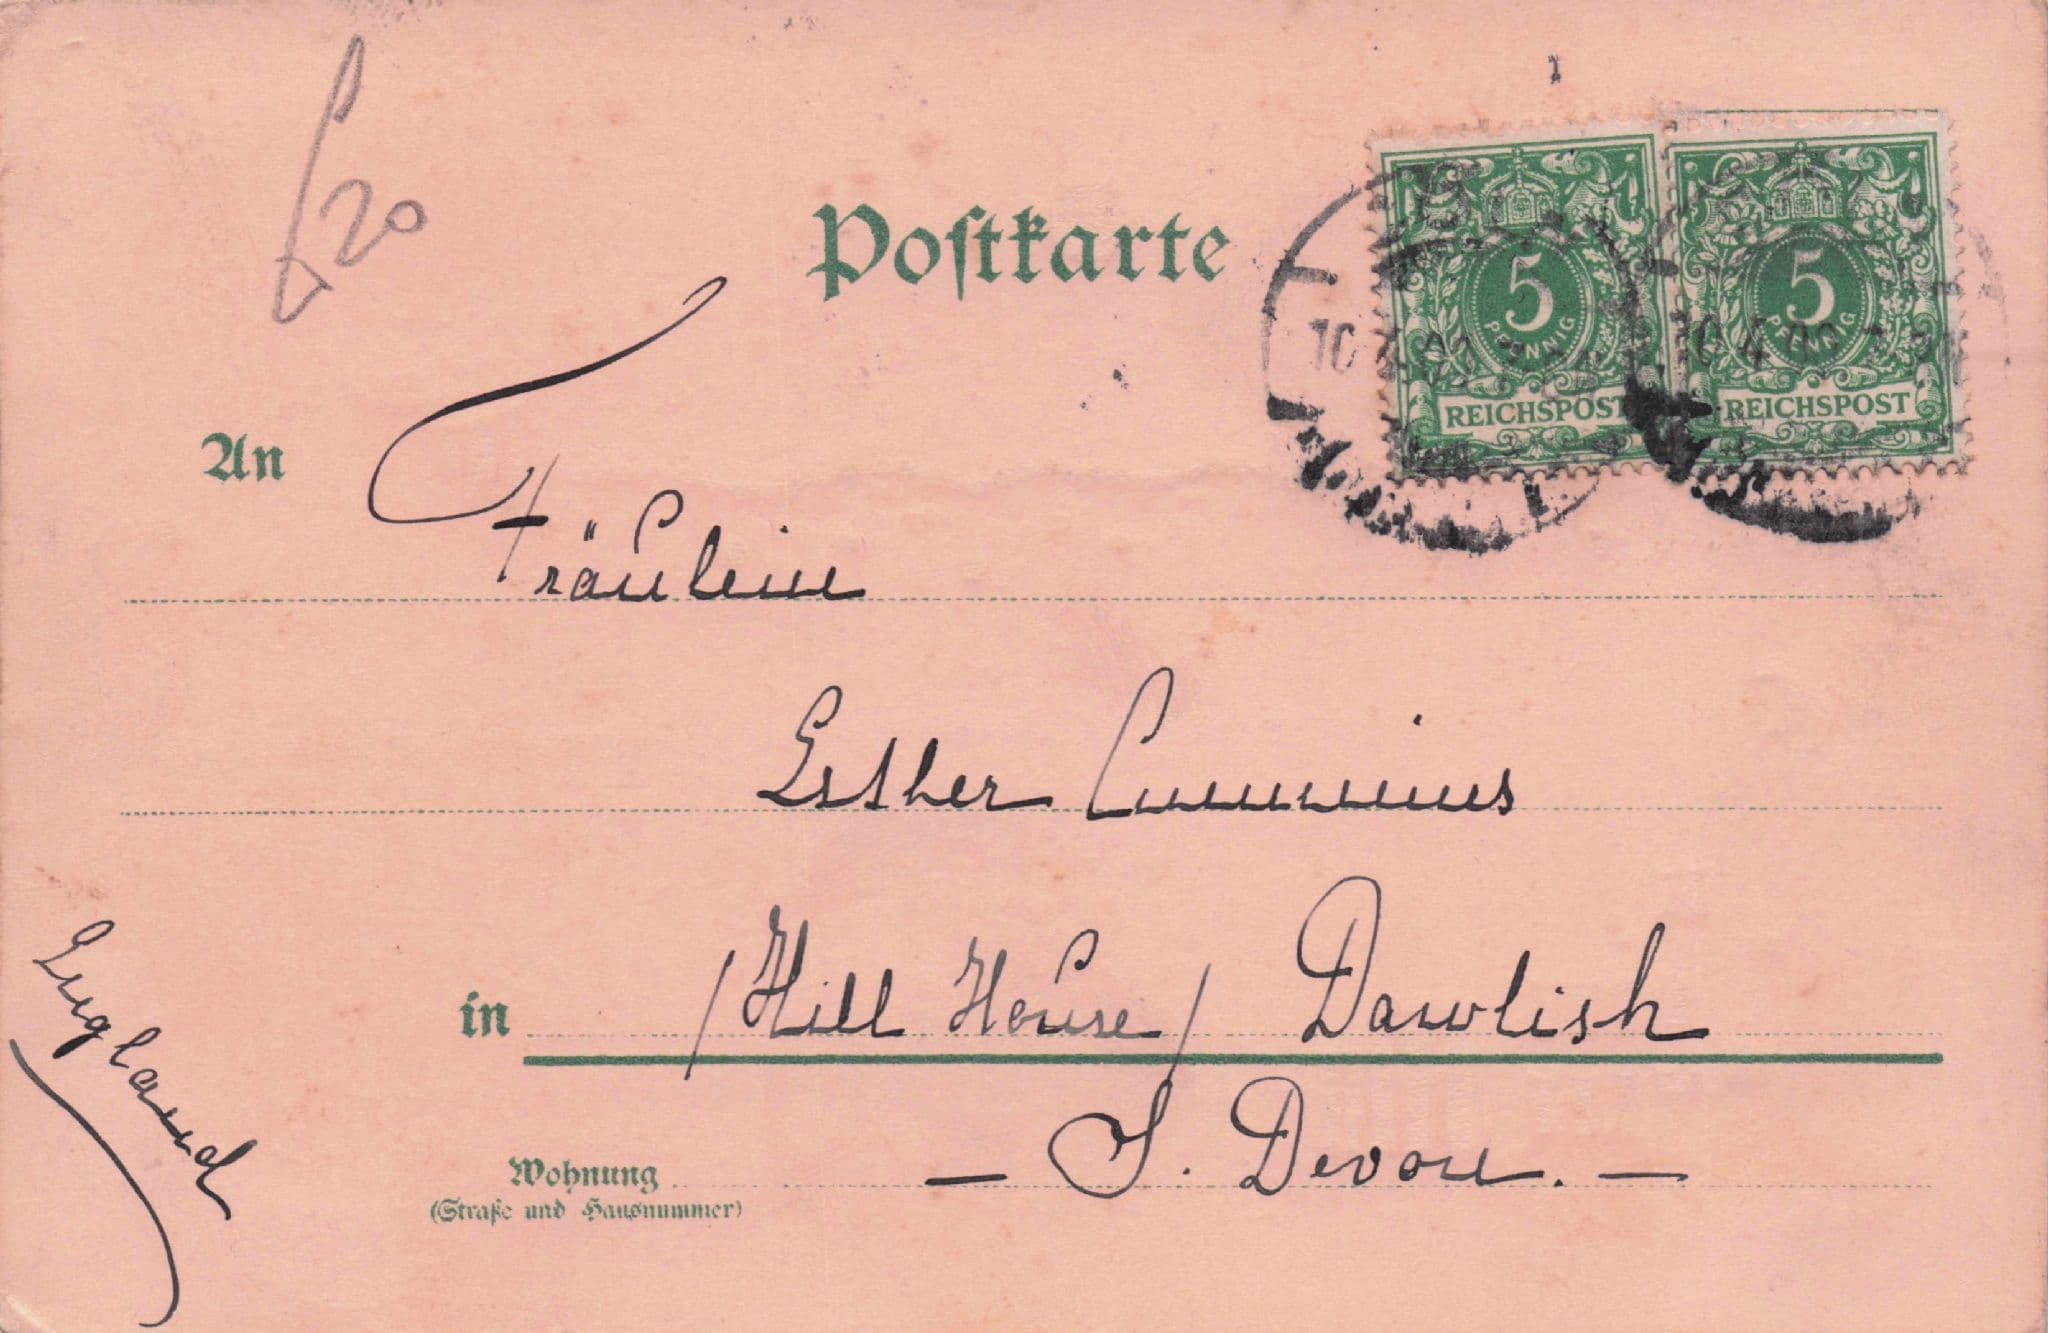 £20
Postkarte
5
PFENNIG
REICHSPOST
5
PFENNIG
REICHSPOST
An
Fräulein
Esther Cummins
in /Hill House/ Dawlish
— S. Devon. —
Wohnung
(Straße und Hausnummer)
England